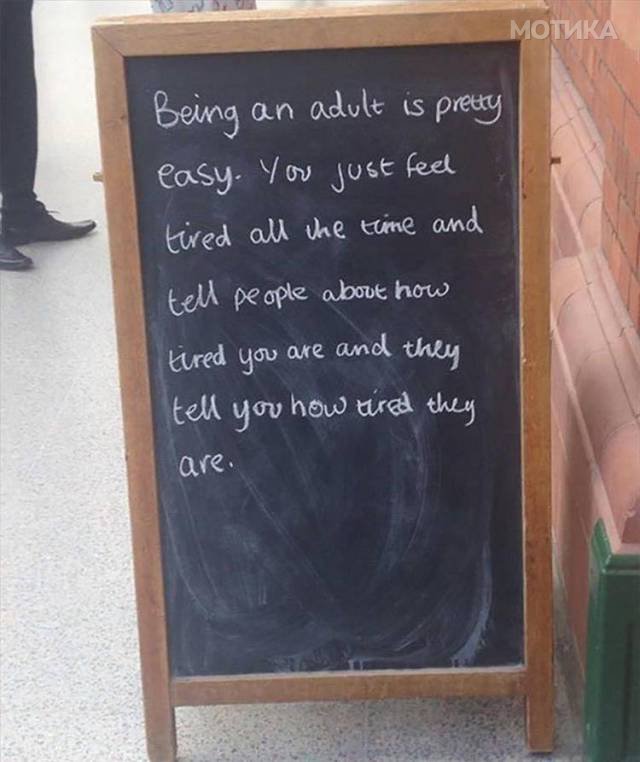 МОТИКА
Being an adult is pretty
easy. You just feel
tired all the time and
tell people about how
tired you are and they
tell you how tired they
are.